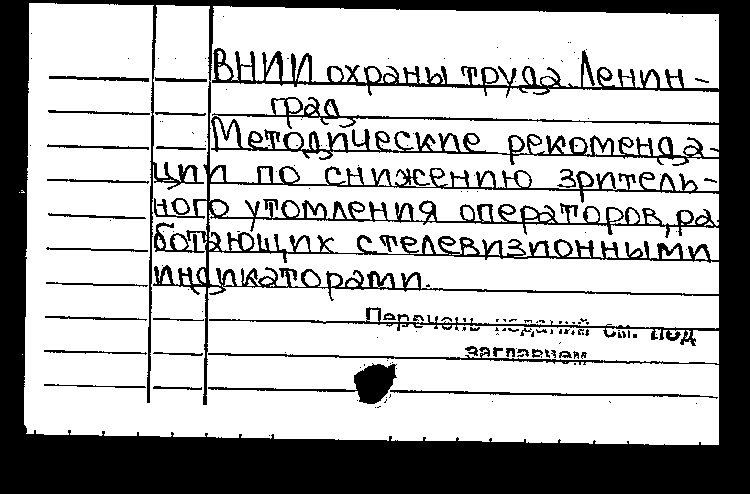 ВНИИ охраны труда. Ленин-
град.
Методические рекоменда-
ции по снижению зритель-
ного утомления операторов, ра-
ботающих с телевизионными
индикаторами.
Перечень изданий см. под
заглавием